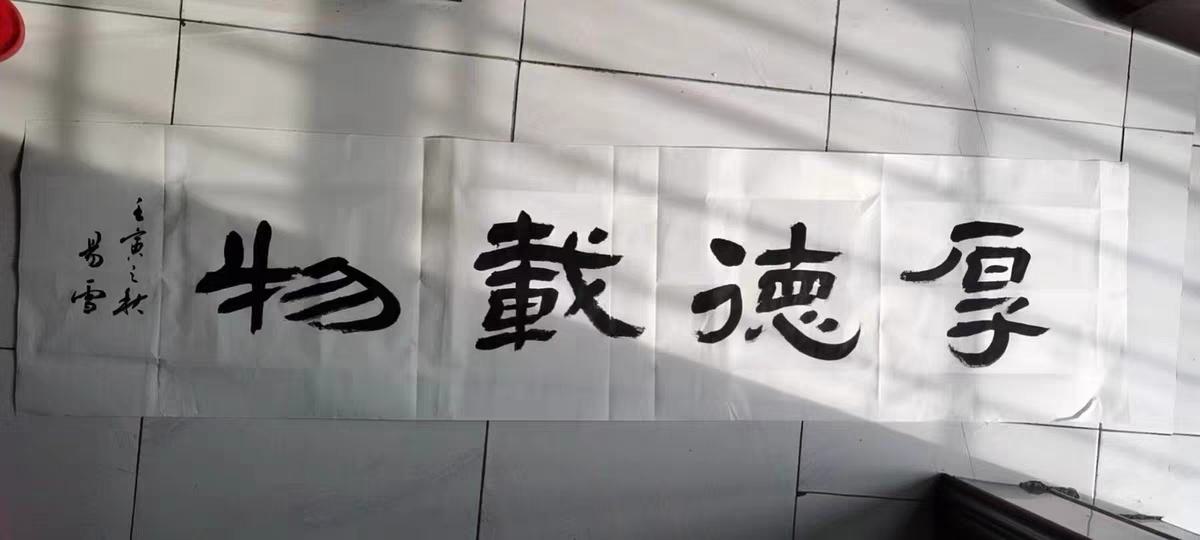 厚德載物
壬寅之秋
易雪